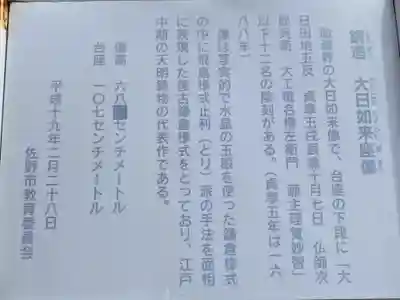 鋳造 大日如来座像
智拳印の大日如来像で、台座の下段に「大
日田地五反 貞享五戊辰暦十月七日 仏師次
大工職名橋左衛門
以下十二名の陰刻がある。(貞享五年は一六
八八年)
像は写実的で水晶の玉眼を使った鎌倉様式
の中に飛鳥様式止利(とり)派の手法を面相
に表現した復古鎌倉様式をとっており、江戸
中期の天明鋳物の代表作である。
像高 六八 センチメートル
台座 一〇七センチメートル
平成十九年二月二十八日
佐野市教育委員会